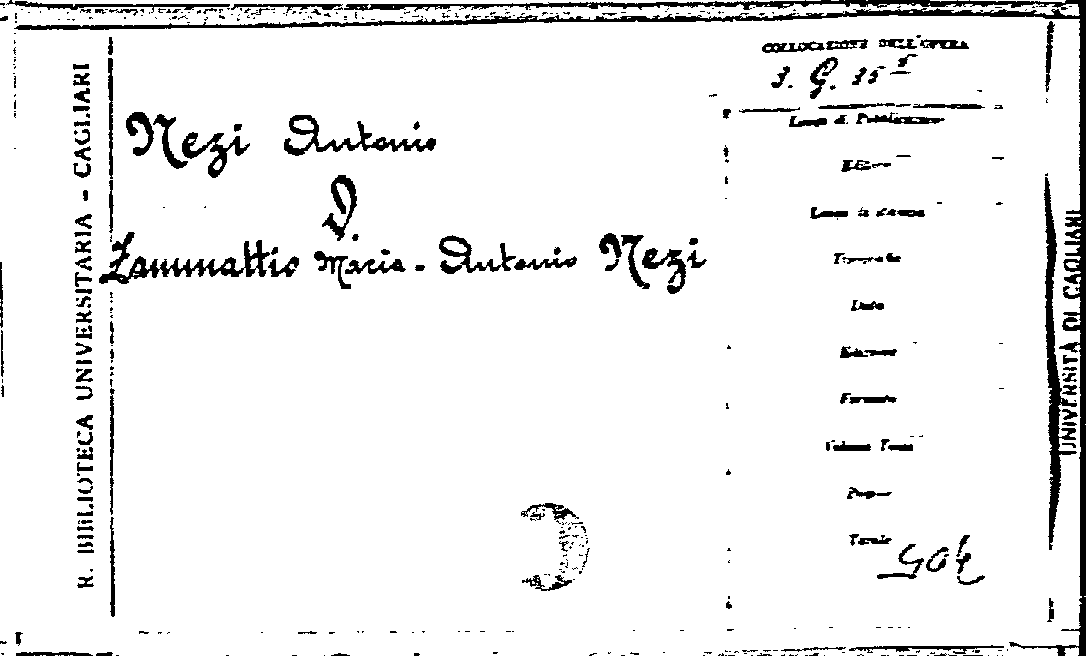 R. BIBLIOTECA UNIVERSITARIA - CAGLIARI
Nezi Antonio
V.
Zammattio Maria - Antonio Nezi
COLLOCAZIONE DELL'OPERA
3. G. 35
Luogo di Pubblicazione
Editore
Luogo di stampa
Tipografia
Data
Edizione
Formato
Volumi Tomi
Pagine
Tavole
UNIVERSITÀ DI CAGLIARI